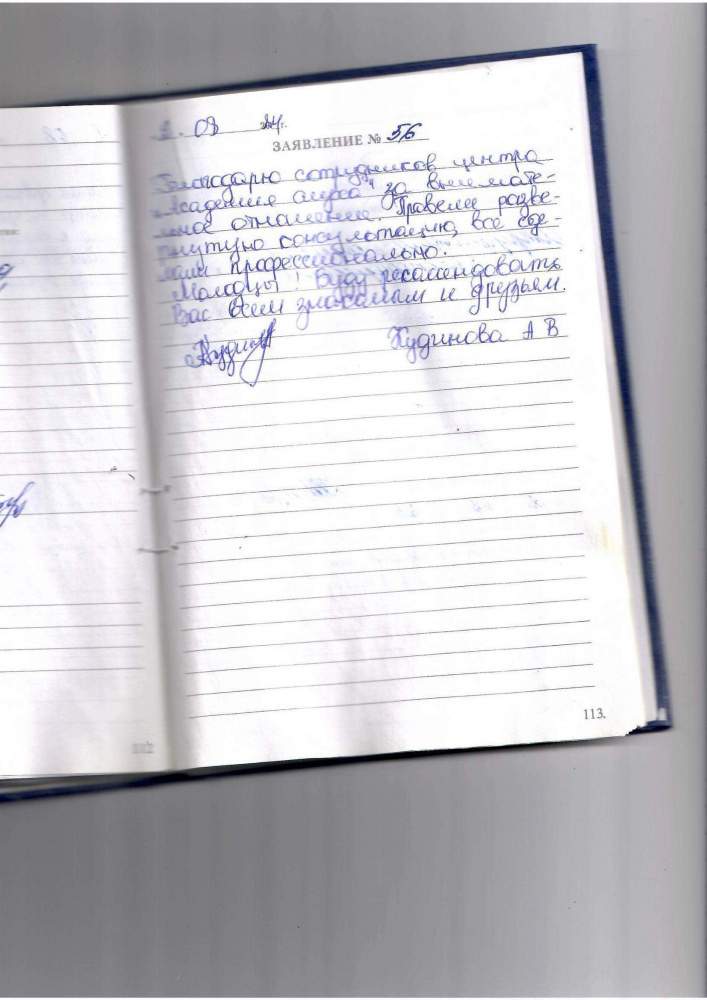 2. 08 24г.
ЗАЯВЛЕНИЕ № 56
Благодарю сотрудников центра
"Академия слуха" за внимате-
льное отношение. Провели развё-
рнутую консультацию, всё сде-
лали профессионально.
Молодцы! Буду рекомендовать
Вас всем знакомым и друзьям.
Кудинова А В
112
113.